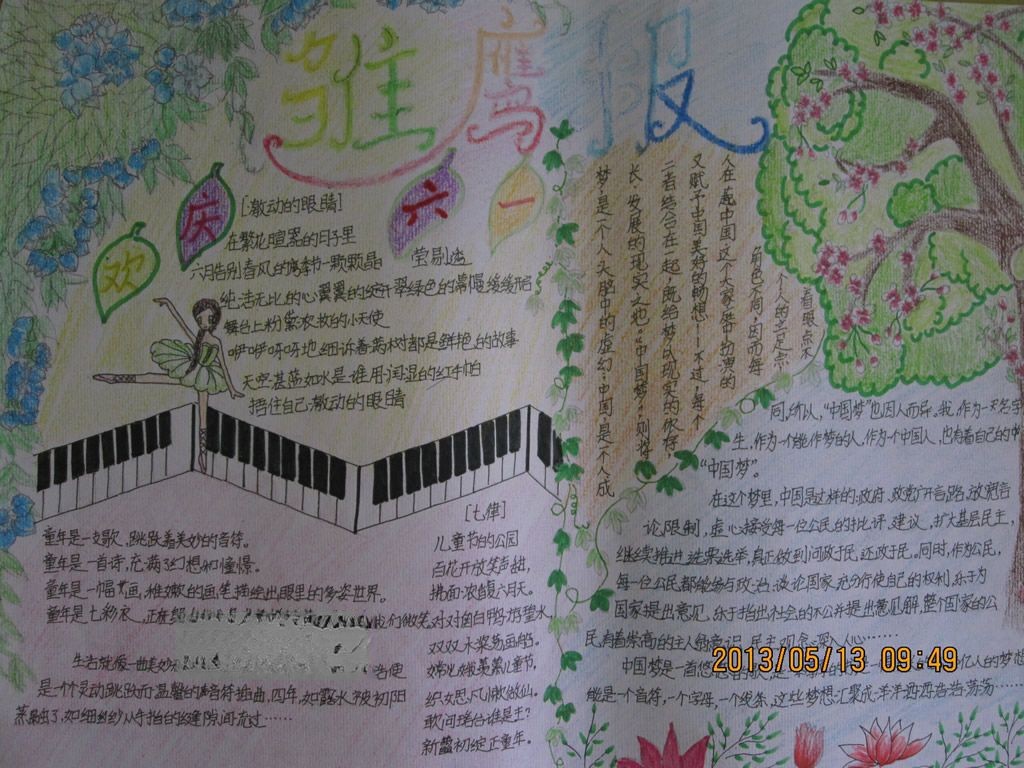 雏鹰报
欢庆六一
[激动的眼睛]
在繁花喧雾的日子里
六月告别春风的季节一颗颗晶莹易逝
纯洁无比的心翼翼的绽开翠绿色的
舞台上粉黛浓妆的小天使
咿咿呀呀地细诉着满树都是鲜艳的故事
天空湛蓝如水是谁用润湿的红手帕
捂住自己激动的眼睛
童年是一支歌，跳跃着美妙的音符。
童年是一首诗，充满了幻想和憧憬。
童年是一幅画，稚嫩的画笔描绘出眼里的多姿世界。
童年是七彩衣，正在
我们微笑
生活就像一曲美妙
是一个个灵动跳跃而温馨的声音符插曲，四年，如露水被初阳
蒸融了，如细细纱从守指台的缝隙间流过……
[七律]
儿童节的公园
百花开放笑声甜，
拂面浓馥六月天。
对对白鸭戏碧水
双双木桨荡画船。
嫦儿娥娥荣儿童节，
织女思凡不做仙。
敢问瑶台谁是主？
新蕾初绽正童年。
人在越中国这个大家庭中扮演的
角色不同，因而每
个人的立足点
着眼点不
又赋予中国美好的畅想——不过，每个
二者结合在一起，既给梦以现实的依存，
长、发展的现实之地。“中国梦”则将
梦，是个人大脑中的虚幻；中国，是个人成
同，所以，“中国梦”也因人而异。我，作为一天名字
生，作为一个能作梦的人，作为个中国人，也有着自己的中
“中国梦”。
在这个梦里，中国是这样的：政府，致党广开言路，放宽言
论限制，虚心接受每一位公民的批评、建议，扩大基层民主，
继续推进选票选举，真正做到问政于民，还政于民。同时，作为公民，
每一位公民都能够参与政治，谈论国家，充分行使自己的权利，乐于为
国家提出意见，乐于指出社会的不公并提出意见解，整个国家的公
民，有着崇高的主人翁意识，民主观念深入人心……
中国梦是一首
亿人的梦想
能是一个音符，一个字母，一个线条，这些梦想汇聚成洋洋洒洒浩浩荡荡……
2013/05/13 09:49